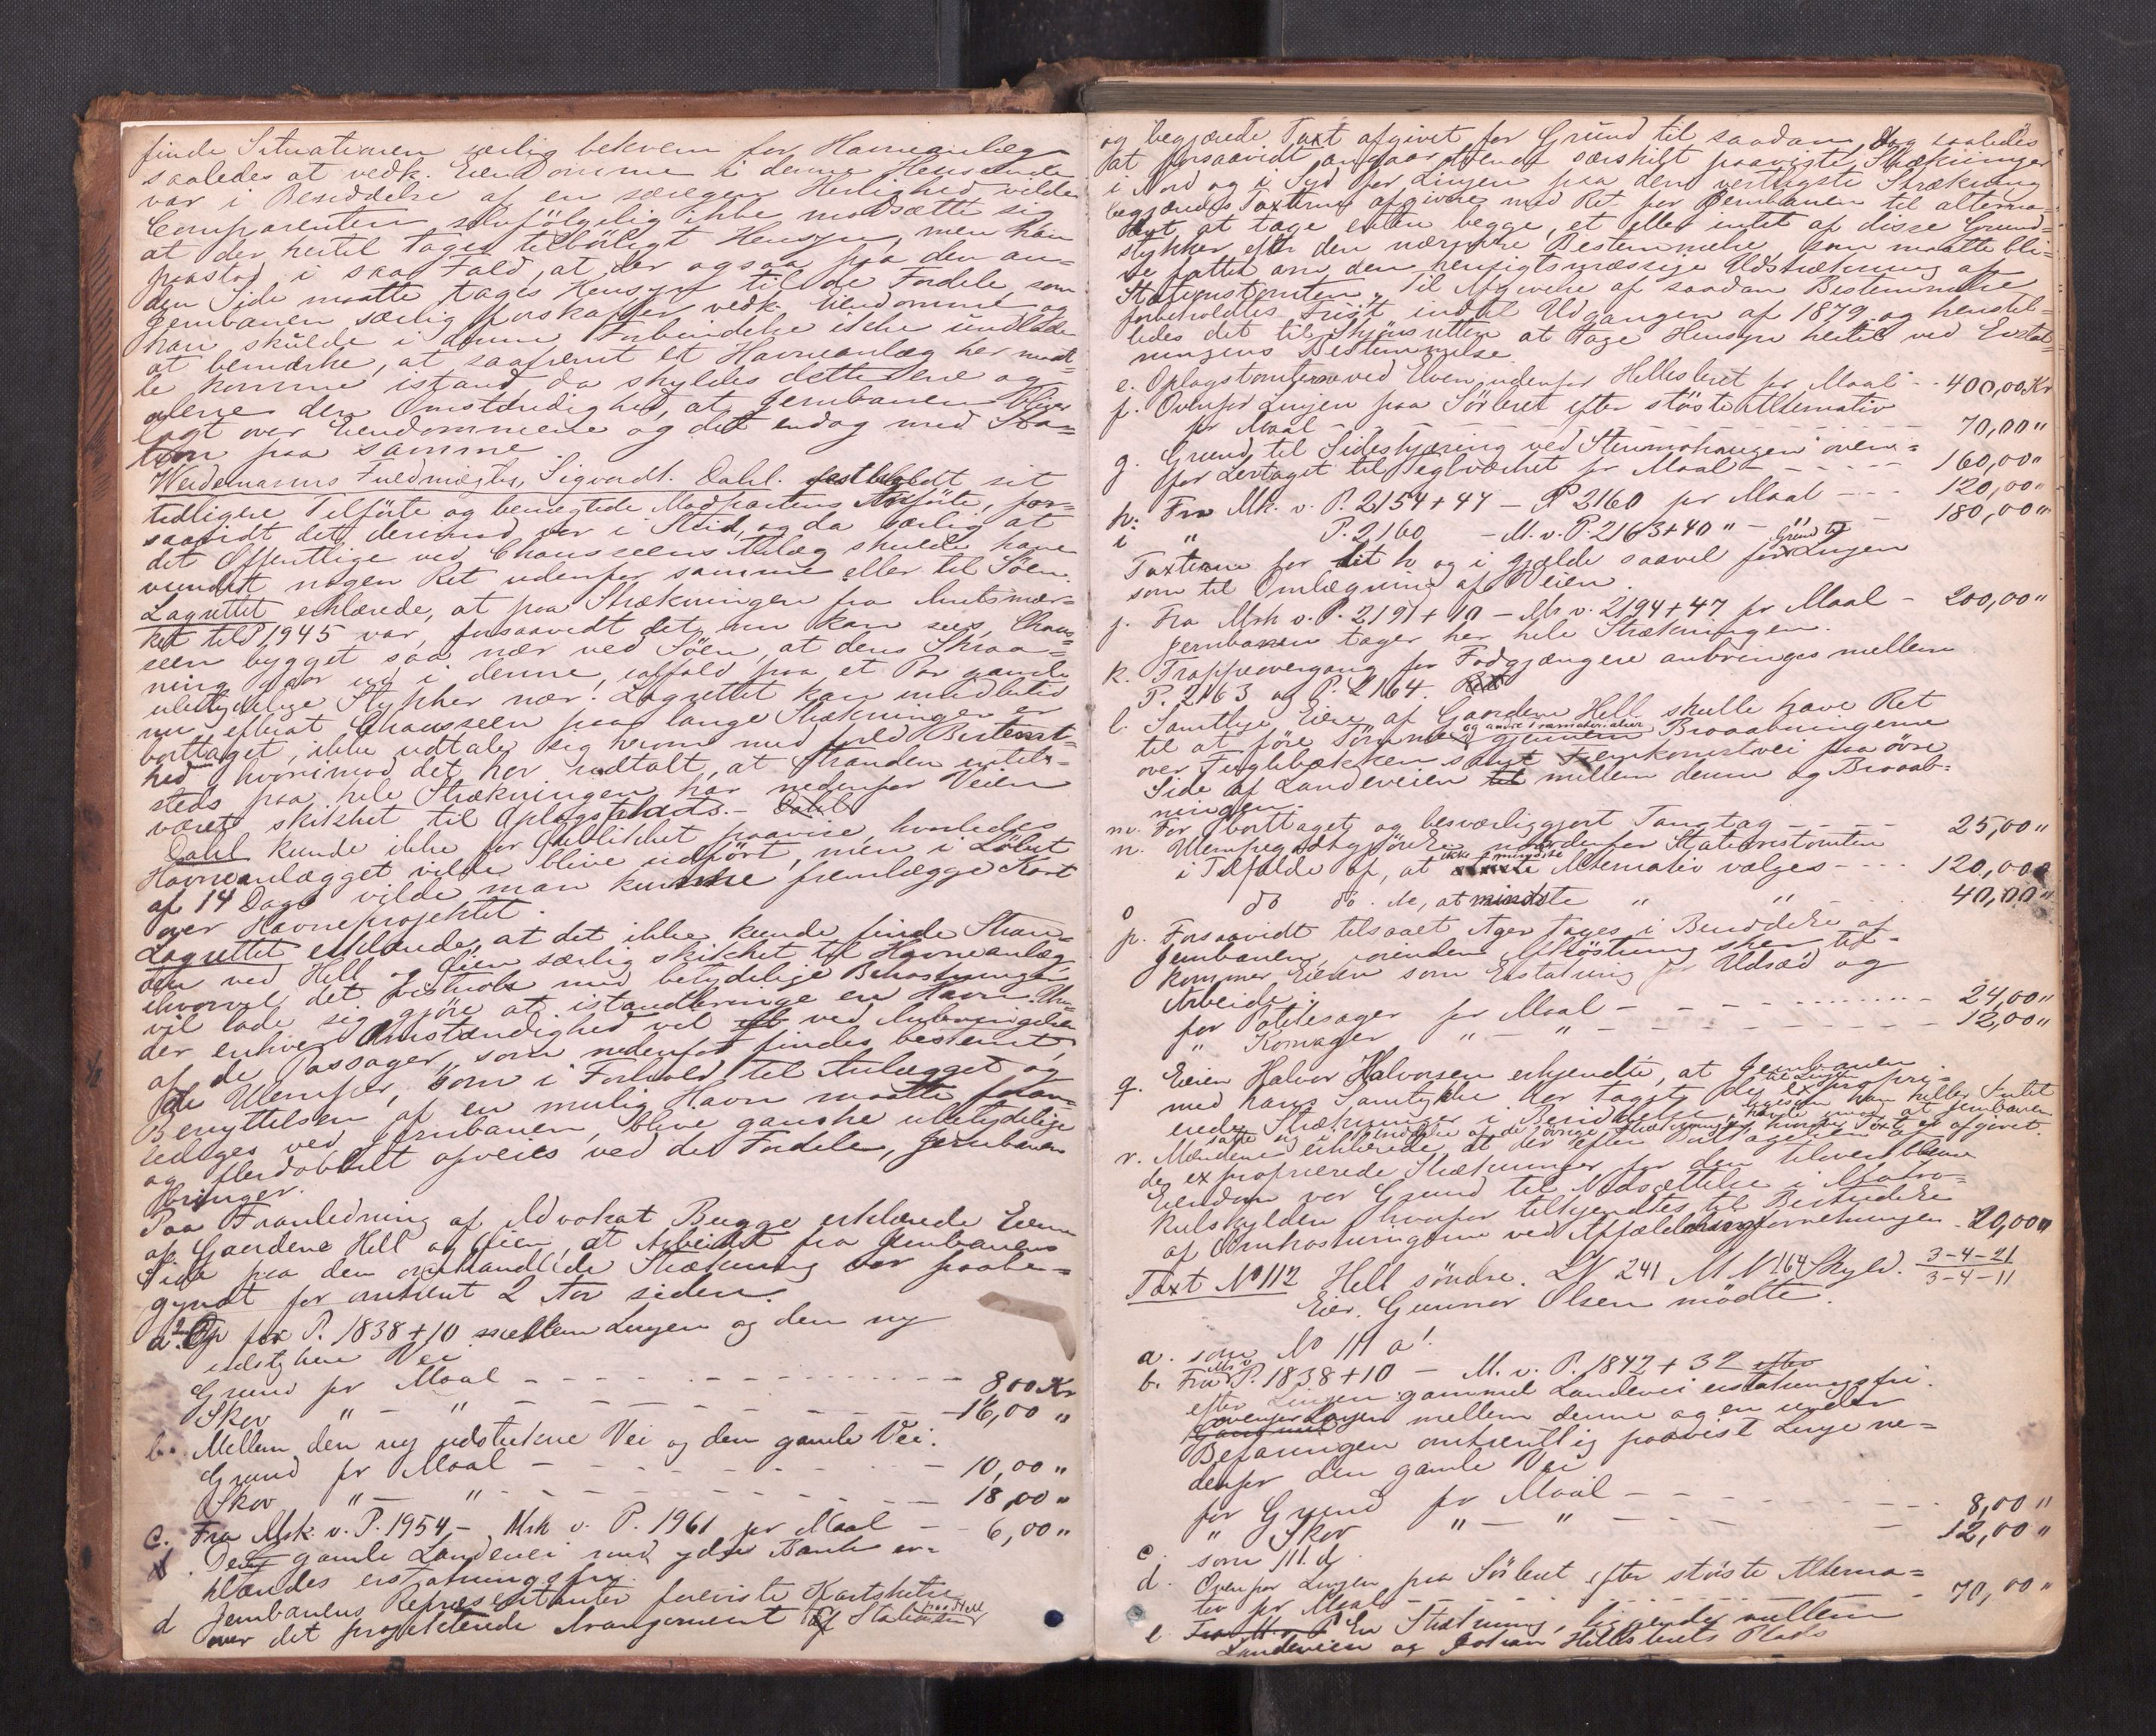 finde Situationen særlig bekvem for Havneanlæg
saaledes at vedk. Eiendomme i denne Henseende
var i Besiddelse af en særegen Herlighed vilde
Comparenten selvfölgelig ikke modsætte sig
at der hertil tages tilbörligt Hensyn, men han
paastod i saa Fald, at der ogsaa paa den an=
den Side maatte tages Hensyn til de Fordele, som
Jernbanen særlig forskaffer vedk. Eiendomme og
han skulde i denne Forbindelse ikke undlade
at bemærke, at saafremt et Havneanlæg her maat=
te komme istand, da skyldes dette ene og
alene den Omstændighed, at Jernbanen bliver
lagt over Eiendommene og det endog med Sta=
tion paa samme.
Weidemanns Fuldmægtig, Sigvardt Dahl fastholdt sit
tidligere Tilförte og benægtede Modpartens Anförte, for=
saavidt det dermed var i Strid, og da særlig at
det Offentlige ved Chausseens Anlæg skulde have
vundet nogen Ret udenfor samme eller til Söen.
Lagrettet erklærede, at paa Strækningen fra Amtsmær=
ket til P. 1945 var, forsaavidt det nu kan sees, Chaus=
seen bygget saa nær ved Söen, at dens Skraa=
ning gaar ud i denne, ialfald paa et Par ganske
ubetydelige Stykker nær. Lagrettet kan imidlertid
nu efterat Chausseen paa lange Strækninger er
borttaget, ikke udtale sig herom med fuld Bestemt=
hed hvorimod det har udtalt, at Stranden intet=
steds paa hele Strækningen har nedenfor Veien
været skikket til Oplagsplads. - Dahl
Dahl kunde ikke for Öieblikket paavise, hvorledes
Havneanlægget vilde blive udfört, men i Löbet
af 14 Dage vilde man kunne fremlægge Kart
over Havneprojektet.
Lagrettet erklærede, at det ikke kunde finde Stran=
den ved Hell og Öien særlig skikket til Havneanlæg,
ihvorvel det vistnok med betydelige Bekostninger
vil lade sig gjöre at istandbringe en Havn. Un=
der enhver Omstændighed vil ved Anbringelsen
af de Passager, som nedenfor findes bestemt,
de Ulemper, som i Forhold til Anlægget og
Benyttelsen af en mulig Havn maatte foran=
lediges ved Jernbanen, blive ganske ubetydelige
og flerdobbelt opveies ved de Fordele, Jernbanen
bringer.
Paa Foranledning af Advokat Bugge erklærede Eierne
af Gaardene Hell og Öien, at Arbeidet fra Jernbanens
Side paa den omhandlede Strækning var paabe=
gyndt for omtrent 2 Aar siden.
a². Op for P. 1838 + 10 mellem Linjen og den ny
udstukne Vei
Grund pr Maal - - - - - - - - 8,00 Kr
Skov " - " - - - - - - - - 16,00 "
b. Mellem den ny udstukne Vei og den gamle Vei.
Grund pr Maal - - - - - - - 10,00 "
Skov " - " - - - - - - - 18,00 "
c. Fra Mrk. v. P. 1954 - Mrk v. P. 1961 pr Maal - - 6,00 "
d. Den gamle Landevei med ydre Kant er=
klændes erstatningsfri.
d Jernbanens Repræsentanter foreviste Kartskitse
over det projekterede Arrangement af Stationen paa Hell
og begjærede Taxt afgivet for Grund til saadan, dog saaledes
at forsaavidt angaar de endt særskilt paaviste Strækninger
i Nord og i Syd for Linjen paa den vestligste Strækning
begjæredes Taxterne afgivne med Ret for Jernbanen til alterna=
tivt at tage enten begge, et eller intet af disse Grund=
stykker efter den nærmere Bestemmelse, som maatte bli=
ve fattet om den hensigtsmæssige Udstrækning af
Stationstomten. Til Afgivelse af saadan Bestemmelse
forbeholdtes Frist indtil Udgangen af 1879 og henstil=
ledes det til Skjönsretten at tage Hensyn hertil ved Erstat=
ningens Bestemmelse
e. Oplagstomten ved Elven udenfor Hellesleret pr Maal - - 400,00 Kr
f. Ovenfor Linjen paa Sörleret efter störste Alternativ
pr Maal - - - - - - - - 70,00 "
g. Grund til Sideskjæring ved Steinmohaugen oven=
for Lertaget til Teglværket pr Maal - - - - 160,00 "
h. Fra Mk. v. P. 2154 + 47 - P 2160 pr Maal - - - 120,00 "
i " P. 2160 - M. v. P. 2163 + 40 " - " - 180,00 "
Taxterne for Lit h og i gjælde saavel for Grund til Linjen
som til Omlægning af Veien.
j. Fra Mrk v. P. 2191 + 10 - Mk v. 2194 + 47 pr Maal - 200,00 "
Jernbanen tager her hele Strækningen.
k. Trappeovergang for Fodgjængere anbringes mellem
P. 2163 og P. 2164.
l. Samtlige Eiere af Gaardene Hell skulle have Ret
til at före Tömmer og andre Træmaterialier gjennem Broaabningerne
over Fuglebækken samt Fremkomstvei paa övre
Side af Landeveien til mellem denne og Broaab=
ningen.
m. For borttaget og besværliggjort Tangtag - - - - 25,00 "
n. Ulempegodtgjörelse nordenfor Stationstomten
i Tilfælde af, at ikke mindste Alternativ vælges - - - 120,00 "
o do do. de, at mindste " " - 40,00 "
p. Forsaavidt tilsaaet Ager tages i Besiddelse af
Jernbanen, forinden Afhöstning sker til=
kommer Eieren som Erstatning for Udsæd og
Arbeide:
for Potetesager pr Maal - - - - - - 24,00 "
" Kornager " - " - - - - - - 12,00 "
q. Eieren Halvor Halvorsen erkjendte, at Jernbanen
med hans Samtykke har taget de til Linjen expropri=
erede Strækninger i Besiddelse, ligesom han heller Intet
havde imod, at Jernbanen
satte sig i Besiddelse af de övrige Strækninger, hvorover Taxt er afgivet.
r. Mændene erklærede at der efter Borttagelsen af
de exproprierede Strækninger for den tilværblevne
Eiendom var Grund til Nedsættelse i Matri=
kulskylden, hvorfor tilkjendtes til Bestridelse
af Omkostningerne ved Affældningsforretningen - 20,00 "
Taxt No 112 Hell söndre. LN 241 M N 164 Skyld. 3-4-21
3-4-11
Eier. Gunnar Olsen mödte.
a. som No 111 a¹.
b. Fra Mk v P. 1838 + 10 - M. v. P. 1842 + 32 efter
efter Linjen gammel Landevei erstatningsfri.
ovenfor Linjen mellem denne og en under
Befaringen omtrentlig paavist Linje ne=
denfor den gamle Vei
for Grund pr Maal - - - - - - - 8,00 "
" Skov " - " - - - - 12,00 "
c. som 111. d.
d. Ovenfor Linjen paa Sörleret efter störste Alterna=
tiv pr Maal - - - - - - - 70,00 "
e Fra M. v. P En Strækning, liggende mellem
Landeveien og Johan Hellslerets Plads